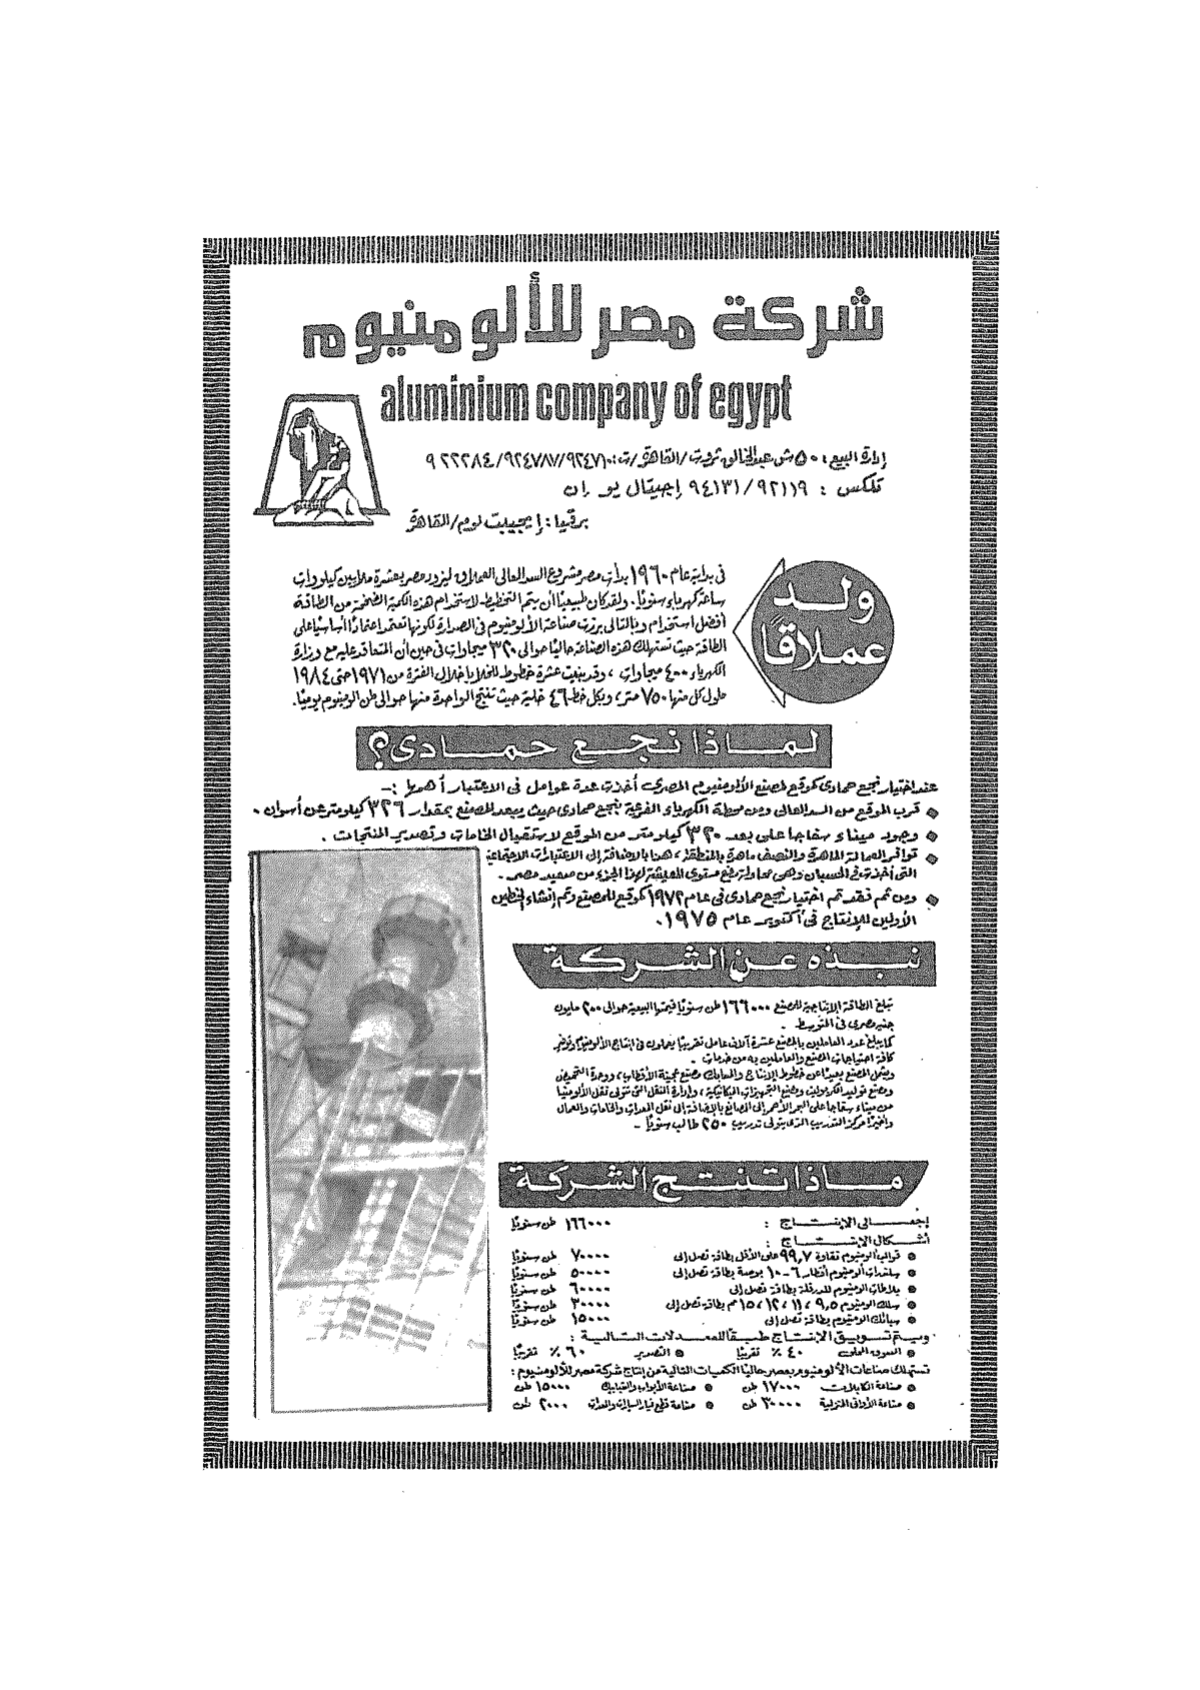 شركة مصر للألومنيوم
aluminium company of egypt
إدارة البيع: ٥٠ ش عبد الخالق ثروت/القاهرة/ت: ٩٢٤٧١٠/٩٢٤٧٨٧/٩٢٢٢٨٤
تلكس : ٩٢١١٩/٩٤١٣١ إجيتال يو. إن
برقيا: إيجيبت لوم/القاهرة
ولد
عملاقًا
فى بداية عام ١٩٦٠ بدأت مصر مشروع السد العالى العملاق ليزود مصر بعشرة ملايين كيلووات
ساعة كهرباء سنويًا. ولقد كان طبيعيًا أن يتم التخطيط لاستخدام هذه الكمية الضخمة من الطاقة
أفضل استخدام وبالتالى برزت صناعة الألومنيوم فى الصدارة لكونها تعتمد اعتمادًا أساسيًا على
الطاقة حيث تستهلك هذه الصناعة حاليًا حوالى ٣٢٠ ميجاوات فى حين أن المتعاقد عليه مع وزارة
الكهرباء ٤٠٠ ميجاوات ، وقد بنيت عشرة خطوط للخلايا خلال الفترة من ١٩٧١ حتى ١٩٨٤
طول كل منها ٧٥٠ متر، وبكل خط ٤٦ خلية حيث تنتج الواحدة منها حوالى طن الومنيوم يوميًا.
لماذا نجع حمادى؟
عند اختيار نجع حمادى كموقع لمصنع الألومنيوم المصرى أخذت عدة عوامل فى الاعتبار أهمها :-
قرب الموقع من السد العالى ومن محطة الكهرباء الفرعية بنجع حمادى حيث يبعد المصنع بمقدار ٣٢٦ كيلومتر عن أسوان .
وجود ميناء سفاجا على بعد ٣٢٠ كيلومتر من الموقع لاستقبال الخامات وتصدير المنتجات .
توافر العمالة الماهرة والنصف ماهرة بالمنطقة ، هذا بالإضافة إلى الاعتبارات الاجتماعية
التى أخذت فى الحسبان وهى محاولة رفع مستوى المعيشة لهذا الجزء من صعيد مصر .
ومن ثم فقد تم اختيار نجع حمادى فى عام ١٩٧٢ كموقع للمصنع وتم إنشاء الخطين
الأولين للإنتاج فى أكتوبر عام ١٩٧٥.
نبذه عن الشركة
تبلغ الطاقة الإنتاجية للمصنع ١٦٦٠٠٠ طن سنويًا قيمتها البيعية حوالى ٢٠٠ مليون
جنيه مصرى فى المتوسط .
كما يبلغ عدد العاملين بالمصنع عشرة آلاف عامل تقريبًا يعملون فى إنتاج الألومنيوم وتوفير
كافة احتياجات المصنع والعاملين به من خدمات .
ويشمل المصنع بعيدًا عن خطوط الإنتاج والمسابك مصنع عجينة الأقطاب ، ووحدة التحميص
ومصنع توليد الكربون ومصنع التجهيزات الميكانيكية ، وإدارة النقل التى تتولى نقل الألومينا
من ميناء سفاجا على البحر الأحمر إلى المصانع بالإضافة إلى نقل المعدات والخامات والعمال
وأخيرًا مركز التدريب الذى يتولى تدريب ٢٥٠ طالب سنويًا .
ماذا تنتج الشركة
إجمالى الإنتاج : ١٦٦٠٠٠ طن سنويًا
أشكال الإنتاج :
قوالب ألومنيوم نقاوة ٩٩,٧ على الأقل بطاقة تصل إلى ٧٠٠٠٠ طن سنويًا
سلندرات ألومنيوم أقطار ٦-١٠ بوصة بطاقة تصل إلى ٥٠٠٠٠ طن سنويًا
بلاطات ألومنيوم للدرفلة بطاقة تصل إلى ٦٠٠٠٠ طن سنويًا
سلك ألومنيوم ٩,٥ ، ١١ ، ١٢ ، ١٥ مم بطاقة تصل إلى ٣٠٠٠٠ طن سنويًا
سبائك ألومنيوم بطاقة تصل إلى ١٥٠٠٠ طن سنويًا
ويتم تسويق الإنتاج طبقًا للمعدلات التالية :
السوق المحلى ٤٠ ٪ تقريبًا التصدير ٦٠ ٪ تقريبًا
تستهلك صناعات الألومنيوم بمصر حاليًا الكميات التالية من إنتاج شركة مصر للألومنيوم :
صناعة الكابلات ١٧٠٠٠ طن صناعة الأبواب والشبابيك ١٥٠٠٠ طن
صناعة الأوانى المنزلية ٣٠٠٠٠ طن صناعة قطع غيار السيارات والمعدات ٢٠٠٠ طن